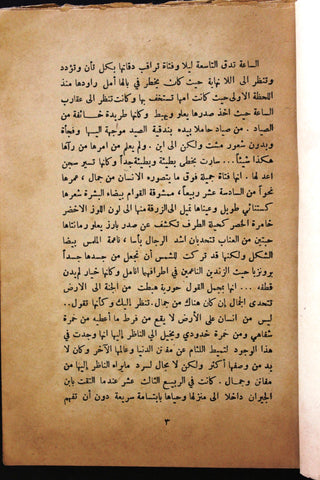 الساعة تدق التاسعة ليلا وفتاة تراقب دقاتها بكل تأن وتؤدد
وتنظر الى اللا نهاية حيث كان يخطر في بالها أمل راودها منذ
اللحظة الاولى حيث كانت امها تستخف بها وكانت تنظر الى عقارب
الساعة حيث اخذ صدرها يعلو ويهبط وكأنها طريدة خائفة من
الصياد . من صياد حاملا بيده بندقية الصيد موجهة اليها وفجأة
وبدون شعور مشت ولكن الى اين . ولم يعلم من امرها من رآها
هكذا شيئاً... سارت بخطى بطيئة وبطيئة جداً وكأنها تسير سجن
اعد لها . انها فتاة جميلة فوق ما يتصوره الانسان من جمال ، عمرها
نحواً من السادسة عشر ربيعاً ، ممشوقة القوام بيضاء البشرة شعرها
كستنائي طويل وعيناها تميل الى الزرقة منها الى لون اللوز الاخضر
خامرة الخصر كحيلة الطرف تكشف عن صدر بارز يعلو رمانتاها
حبتين من العناب تتحديان اشد الرجال بأسا ، ناعمة الملس بيضا
الشكل ولكنها قد تركت للشمس أن تجعل من جسدها جسداً
برونزيا حيث الزندين الناعمين في اطرافهما انامل وكأنها خيار لم يدن
قطفه ... انها بمجمل القول حورية هبطت من الجنة الى الارض
تتحدى الجمال إن كان هناك من جمال . تنظر اليك وكأنها تقول..
ليس من انسان على الأرض لا يقع من فرط ما أعطيه من خمرة
شفاهي ومن خمرة خدودي ويخيل الي الناظر إليها انها وجدت في
هذا الوجود لتميط اللثام عن مفاتن الدنيا وعالمها الآخر وكان لا
بد من وصفها أكثر ولكن لا مجال لسرد ما يراه الناظر إليها من
مفاتن وجمال . كانت في الربيع الثالث عشر عندما التقت بابن
الجيران داخلا الى منزلها وحياها بابتسامة سريعة دون أن تفهم
٣